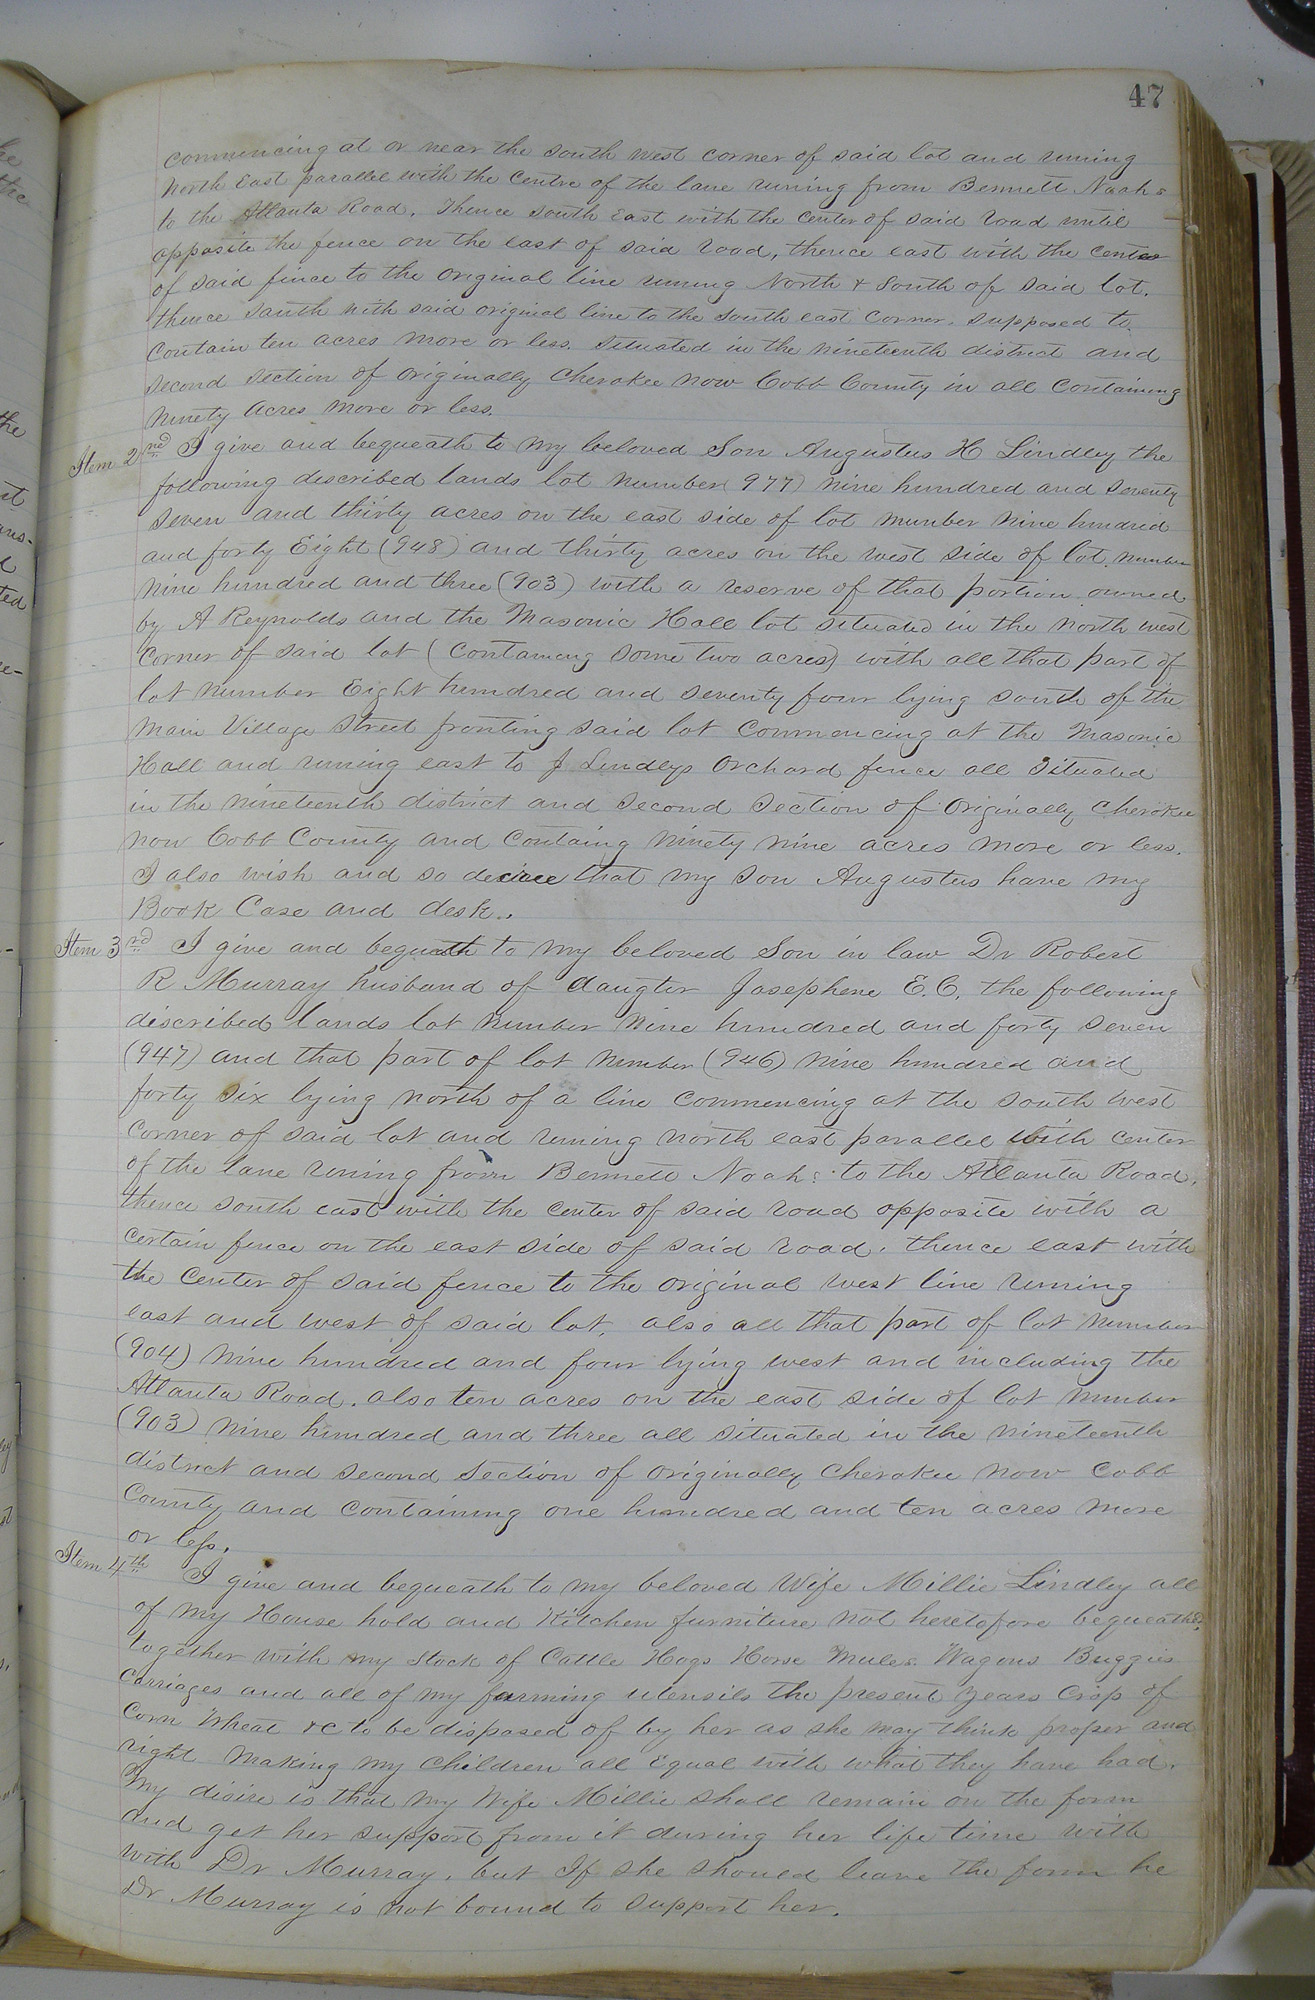 47
commencing at or near the south west corner of said lot and runing
North East parallel with the Centre of the lane runing from Bennett Noahs
to the Atlanta Road. Thence south East with the center of said road until
opposite the fence on the east of said road, thence east with the center
of said fince to the original line runing North & South of said lot.
thence South with said original line to the South east Corner. supposed to
Contain ten acres more or less. Situated in the nineteenth district and
second section of originally Cherokee now Cobb County in all Containing
Ninety Acres more or less.
Item 2nd I give and bequeath to my beloved Son Augustus H Lindley the
following described lands lot number (977) nine hundred and seventy
seven and thirty acres on the east side of lot number nine hundred
and forty Eight (948) and thirty acres on the west side of lot number
nine hundred and three (903) with a reserve of that portion owned
by A Reynolds and the Masonic Hall lot situated in the north west
Corner of said lot (Containing some two acres) with all that part of
lot number Eight hundred and seventy four lying south of the
Main Village Street fronting said lot Commencing at the Masonic
Hall and runing east to J Lindleys Orchard fence all Situated
in the nineteenth district and second section of Originally Cherokee
now Cobb County and Containg Ninety nine acres more or less.
I also wish and so decree that my son Augustus have my
Book Case and desk.
Item 3rd I give and bequeath to my beloved Son in law Dr Robert
R Murray husband of daugter Josephene E.C. the following
discribed lands lot number Nine hundred and forty seven
(947) and that part of lot number (946) nine hundred and
forty six lying north of a line Commencing at the south west
Corner of said lot and runing north east parallel with center
of the lane runing from Bennett Noahs to the Atlanta Road,
thence south east with the center of said road opposite with a
certain fence on the east side of said road. thence east with
the Center of said fence to the original west line runing
east and west of said lot, also all that part of lot number
(904) Nine hundred and four lying west and including the
Atlanta Road. also ten acres on the east side of lot number
(903) Nine hundred and three all situated in the nineteenth
district and second section of originally Cherokee now Cobb
County and Containing one hundred and ten acres more
or less.
Item 4th I give and bequeath to my beloved Wife Millie Lindley all
of my House hold and Kitchen furniture not heretofore bequeathed
together with my Stock of Cattle Hogs Horse Mules Wagons Buggies
Carriages and all of my farming utensils the present years Crop of
Corn Wheat &c to be disposed of by her as she may think proper and
right Making my Children all Equal with what they have had.
My disire is that my Wife Millie shall remain on the farm
and get her support from it during her life time with
with Dr Murray, but If she should leave the farm he
Dr Murray is not bound to support her.